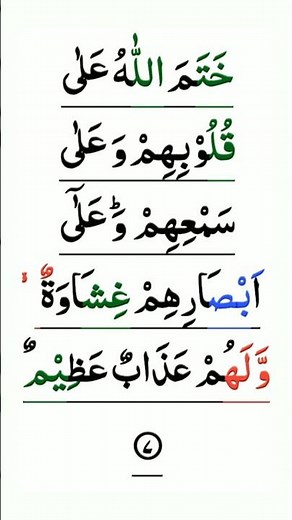 خَتَمَ اللّٰهُ عَلٰى
قُلُوْبِهِمْ وَ عَلٰى
سَمْعِهِمْ ؕ وَ عَلٰۤى
اَبْصَارِهِمْ غِشَاوَةٌ ؗ
وَّ لَهُمْ عَذَابٌ عَظِيْمٌ
۷